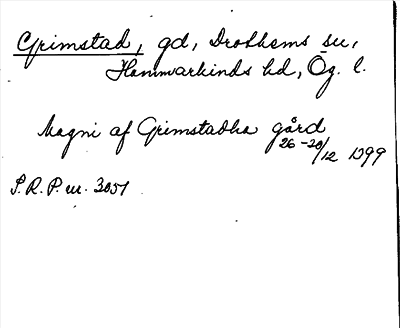 Grimstad, gd, Drothems sn,
Hammarkinds hd, Ög. l.
Magni af Grimstadha gård
26-20/12 1399
S.R.P. nr. 3051